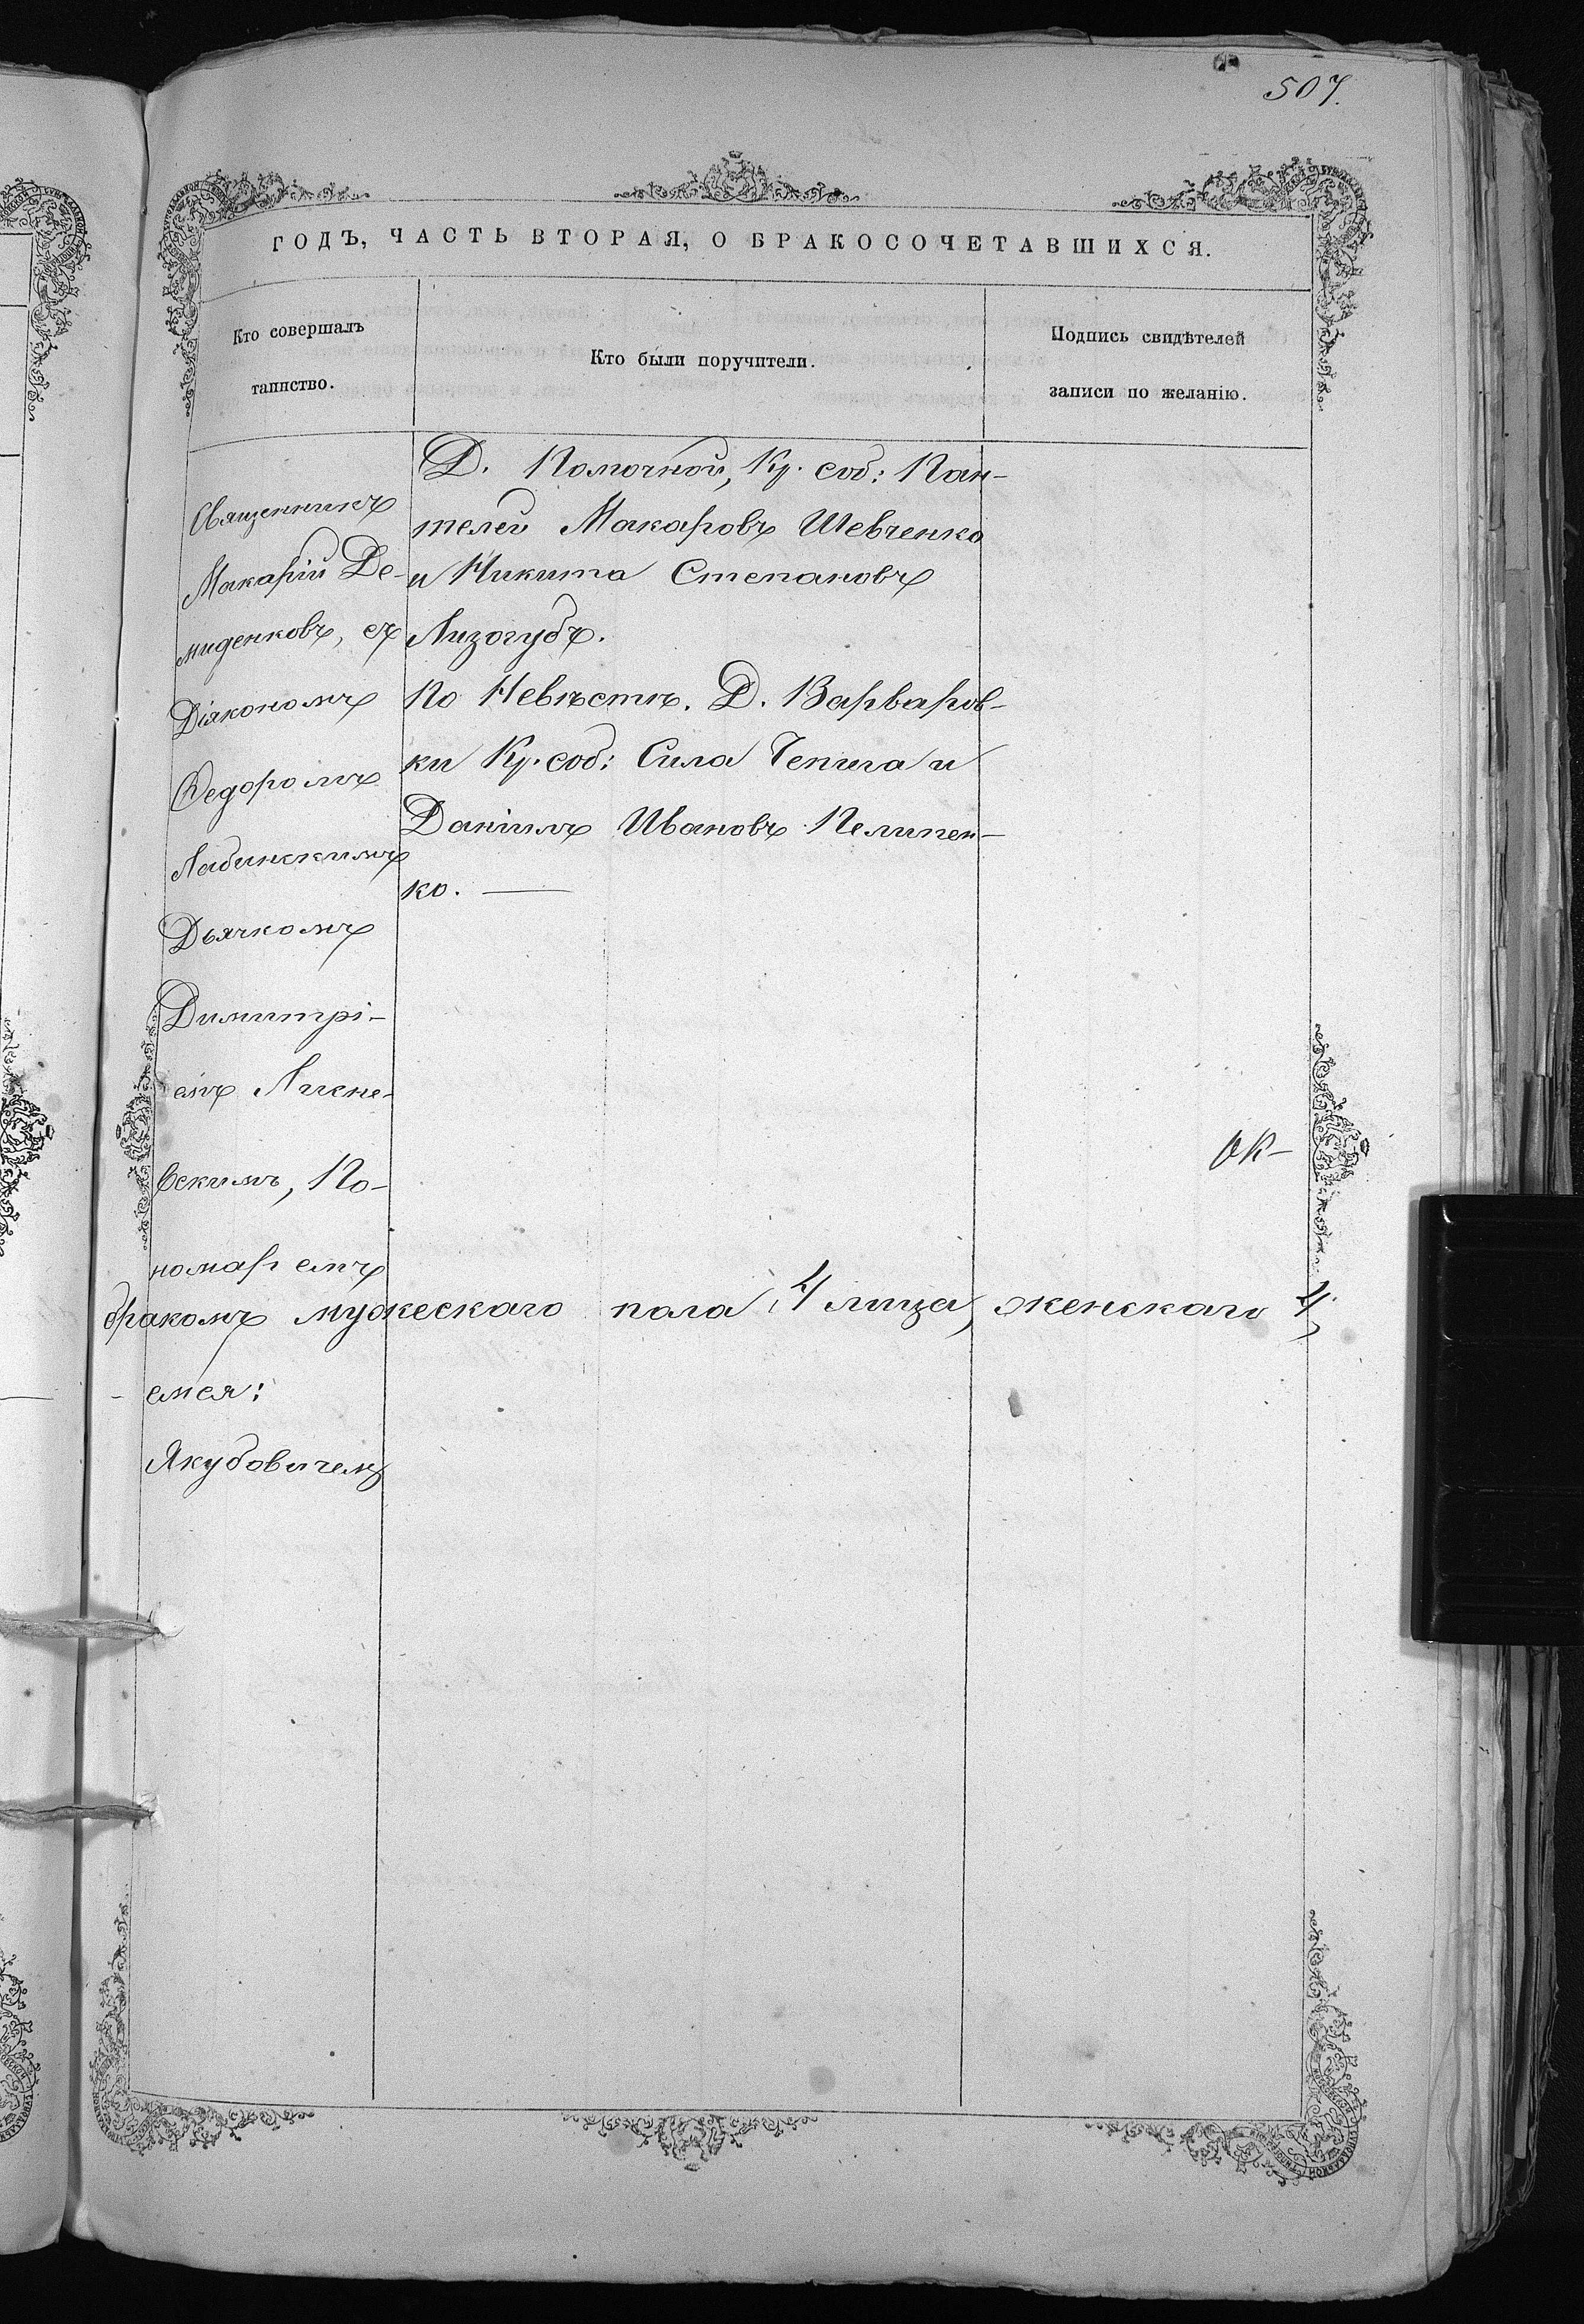 507.
ГОДЪ, ЧАСТЬ ВТОРАЯ, О БРАКОСОЧЕТАВШИХСЯ.
Кто совершалъ
таинство.
Кто были поручители.
Подпись свидѣтелей
записи по желанію.
Священникъ
Макарій Де-
миденковъ, съ
Діякономъ
Ѳедоромъ
Лабинскимъ
Дьячкомъ
Димитрі-
емъ
вскимъ, По-
номаремъ
Д. Помочной, Кр. соб: Пан-
телей Макаровъ Шевченко
и Никита Степановъ
Лизогубъ.
По Невѣстѣ. Д. Варваров-
ки Кр. соб: Сила Чепига и
Даніилъ Ивановъ Пелипен-
ко. —
ок-
бракомъ мужескаго пола 4 лица, женскаго 4,
Якубовичемъ